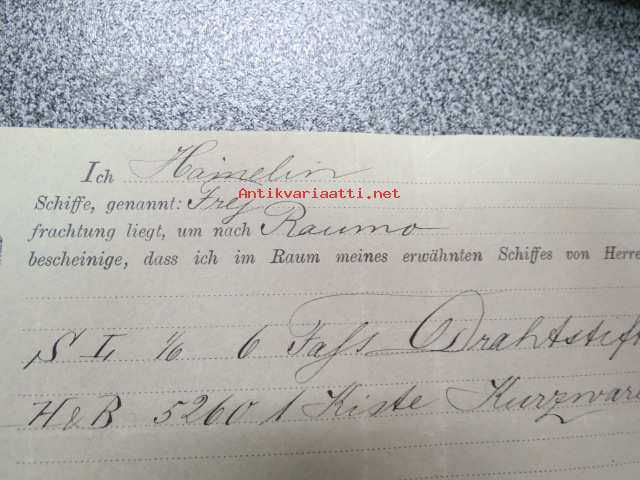 Ich Hamelin
Antikvariaatti.net
Schiffe, genannt: Frej
frachtung liegt, um nach Raumo
bescheinige, dass ich im Raum meines erwähnten Schiffes von Herre
S L 1/6 6 Fass Drahtstift
H & B 5260 1 Kiste Kurzware